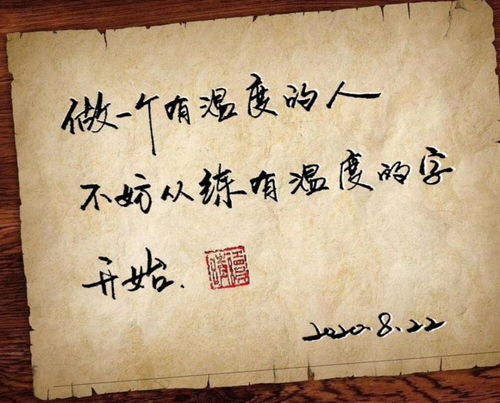 做一个有温度的人
不妨从练有温度的字
开始.
2020.8.22